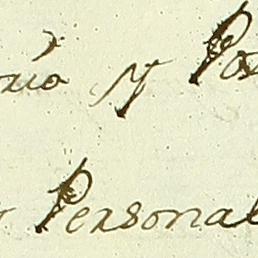 rio y Pos
Personal